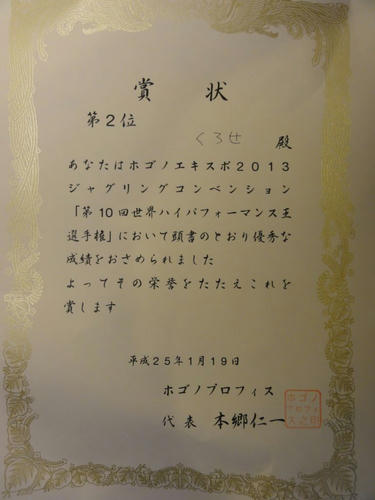 賞状
第2位
くろせ 殿
あなたはホゴノエキスポ2013
ジャグリングコンベンション
「第10回世界ハイパフォーマンス王
選手権」において頭書のとおり優秀な
成績をおさめられました
よってその栄誉をたたえこれを
賞します
平成25年1月19日
ホゴノプロフィス
代表 本郷仁一
ホゴノ
プロフィ
ス之印